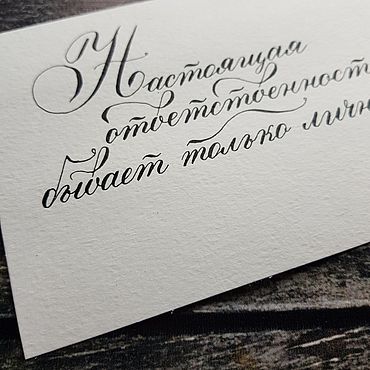 Настоящая
ответственност
бывает только личн